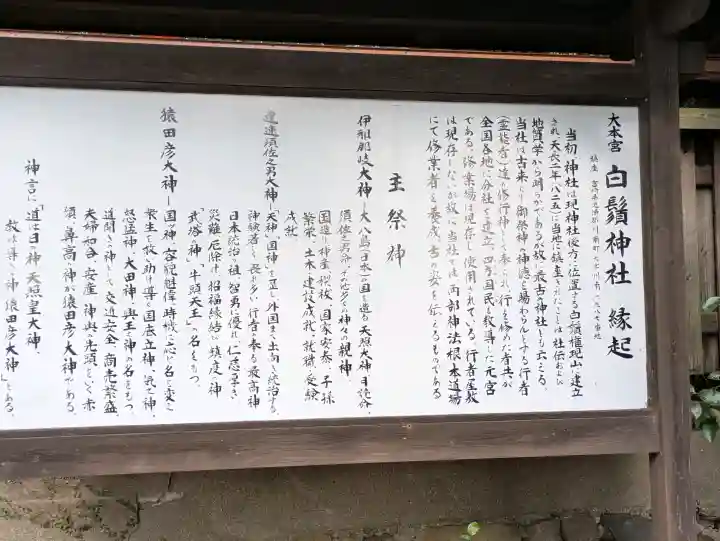 大本宮 白鬚神社 縁起
鎮座 宮崎県児湯郡川南町大字川南
当初、神社は現神社後方に位置する白鬚権現山に建立
され、天長二年(八二五)に当地に鎮座されたことは、社伝および
地質学から明らかであるが故に最古の神社とも云える。
当社は古来より御祭神の神徳を賜わらんとする行者
全国各地に分社を建立、国民を教導した元宮
である。修業場は現存し使用されている。行者屋敷
は現存しないが故に当社では、両部神法根本道場
にて修業者を養成、古の姿を伝えるものである
主祭神
伊邪那岐大神―大八島(日本)の国を造る、天照大神、月読命、
須佐之男命、その他多くの神々の親神、
国造り、神産、禊祓、国家安泰、子孫
繁栄、土木建設成就、就職、受験
成就。
建速須佐之男大神―天神、国神を正し、外国まで出向き統治する、
神験著るく畏れ多い、行者の奉る最高神
日本統治の祖、智勇に優れ、仁慈の厚き
災難厄除け、招福縁結び、鎮疫の神
「武塔の神、牛頭天王」の名をもつ。
猿田彦大神―国の神、容貌魁偉、時機に応じ名を変え
衆生を救い助け導く国底立神、気の神、
怒猛神、大田神、興玉神の名をもつ、
道開きの神として、交通安全、商売繁盛、
夫婦和合、安産、神輿の先頭をいく、赤
顔、鼻高の神が猿田彦大神である。
神言に「道は日の神天照皇大神、
教は導きの神猿田彦大神」とある。